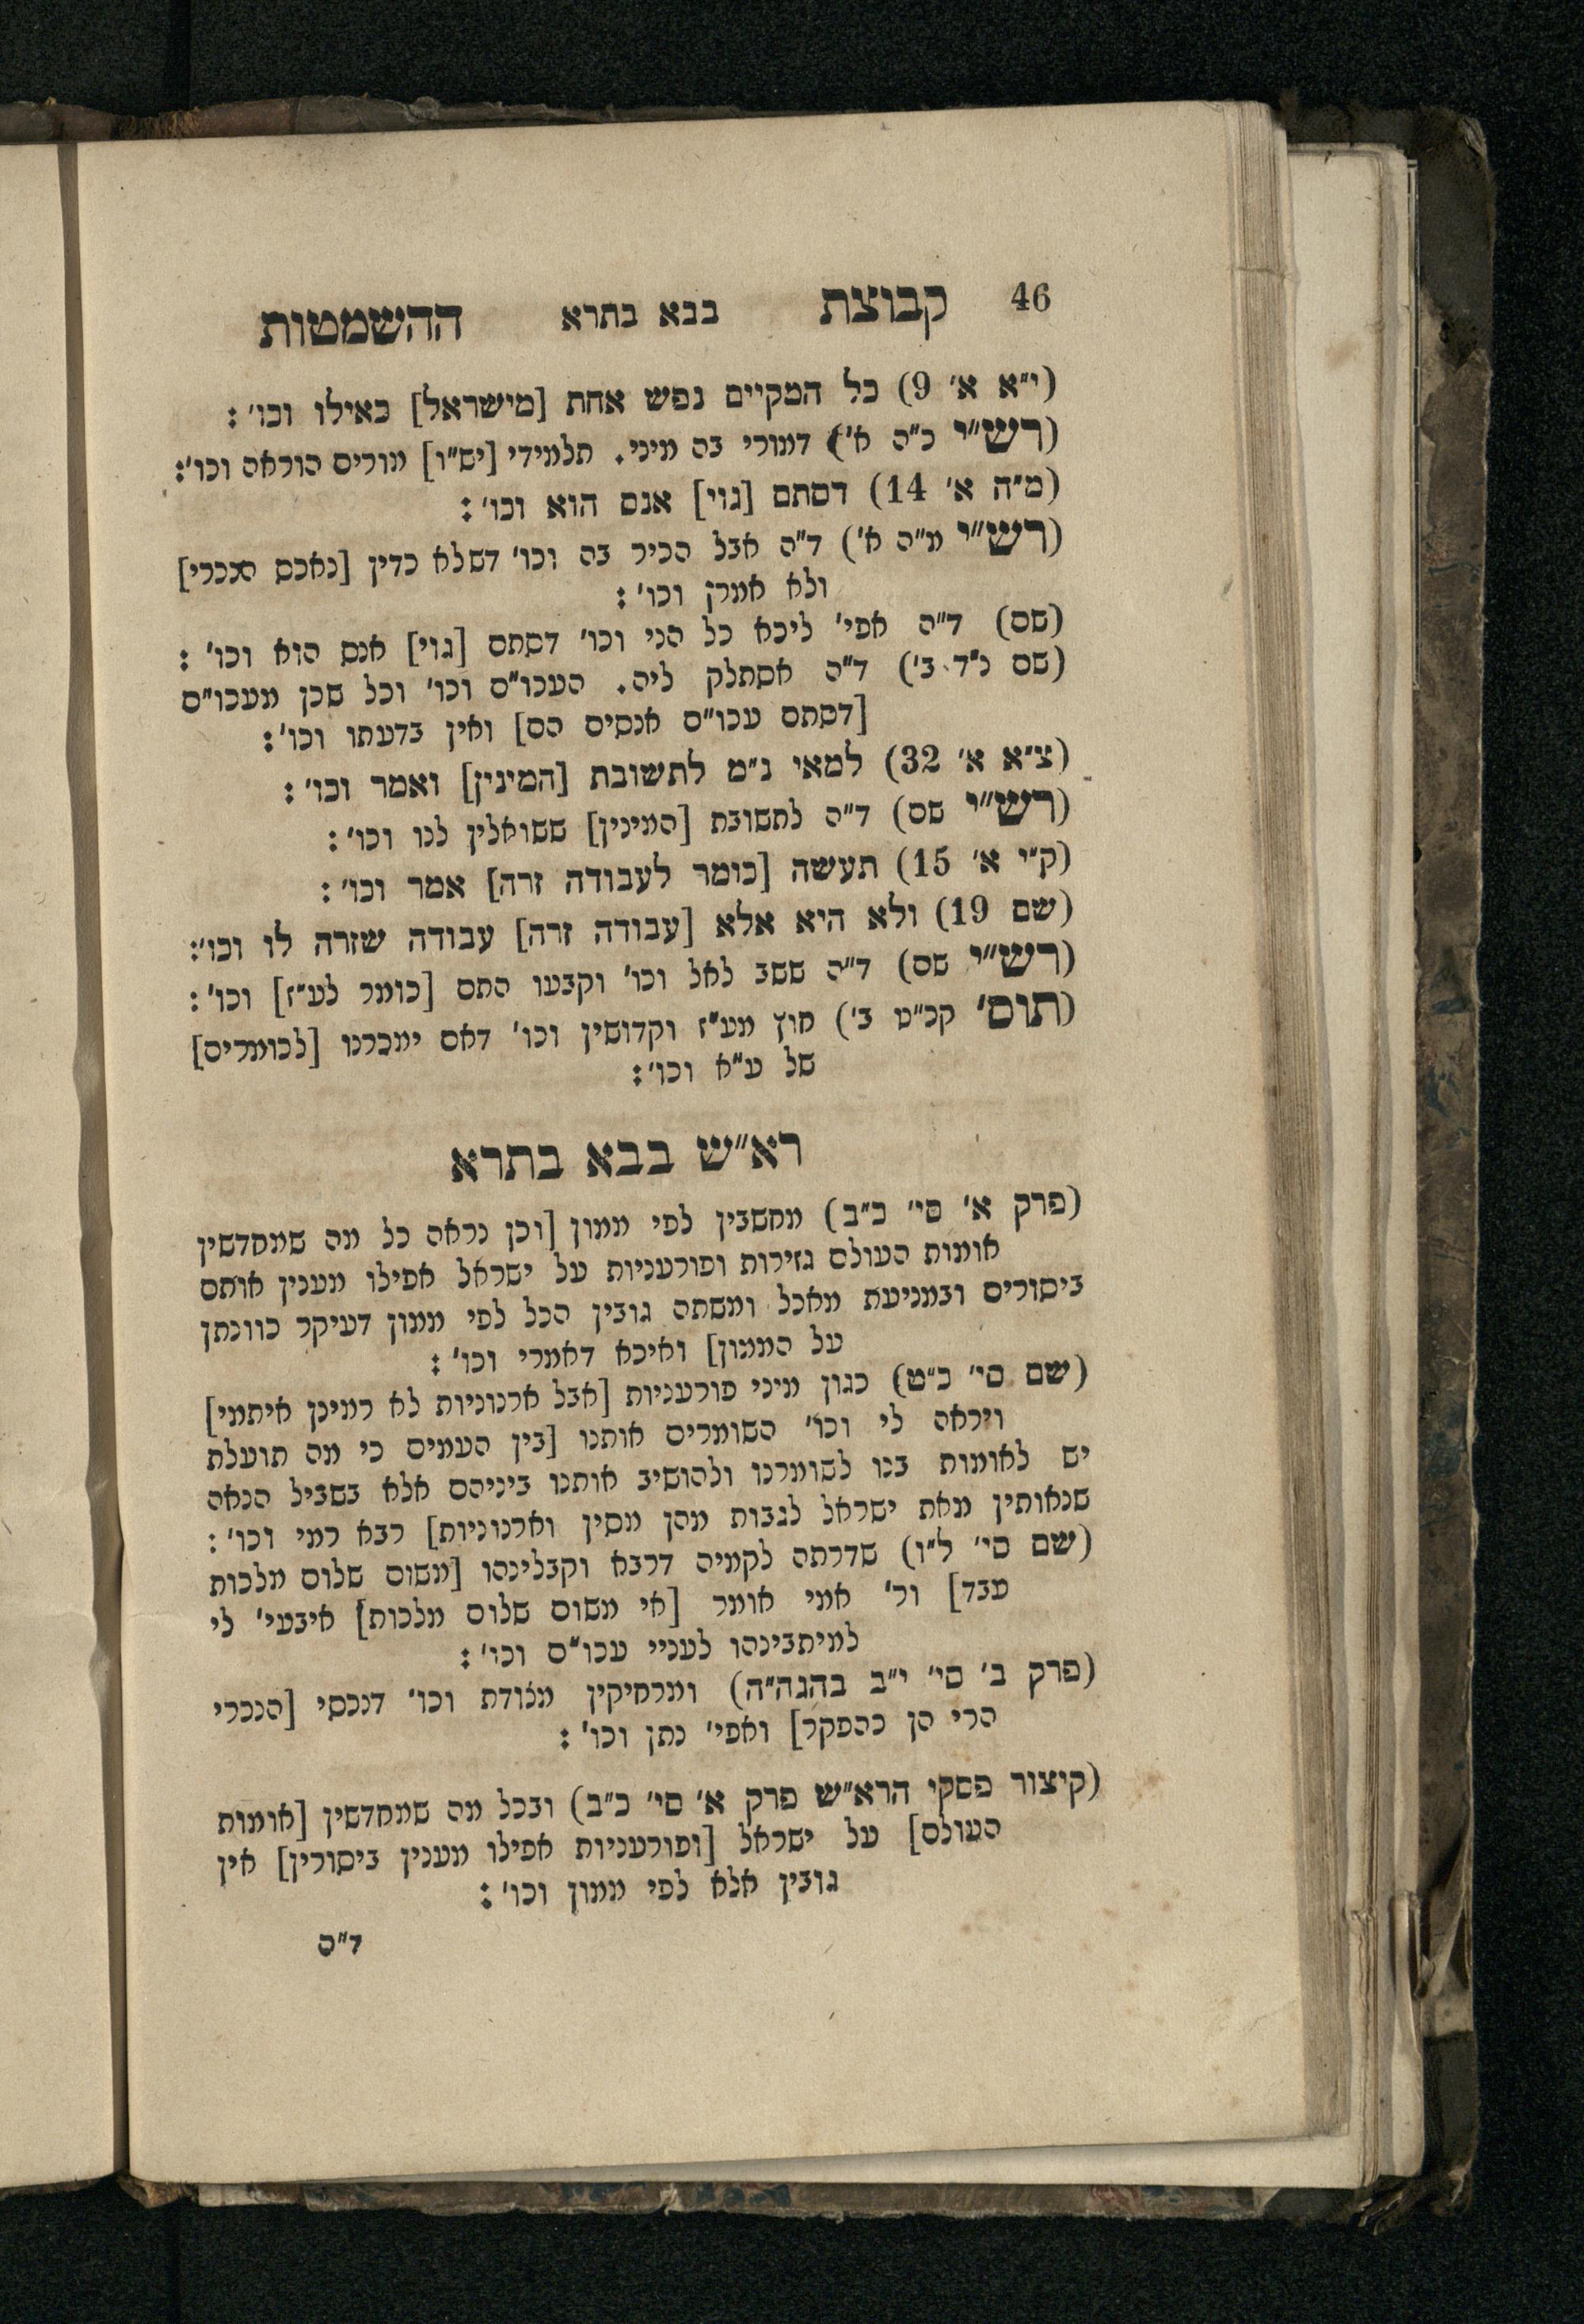 46 קבוצת בבא בתרא ההשמטות
(י״א א׳ 9) כל המקיים נפש אחת [מישראל] כאילו וכו׳ :
(רש״י כ״ה א׳) דמורי בה מיני. תלמידי [יש״ו] מורים הוראה וכו׳:
(מ״ה א׳ 14) דסתם [גוי] אנס הוא וכו׳ :
(רש״י מ״ה א׳) ד״ה אבל הכיר בה וכו׳ דשלא כדין [נאכס הנכרי]
ולא אמרן וכו׳ :
(שם) ד״ה אפי׳ ליכא כל הני וכו׳ דסתם [גוי] אנס הוא וכו׳ :
(שם נ״ד ב׳) ד״ה אסתלק ליה. העכו״ם וכו׳ וכל שכן מעכו״ם
[דסתם עכו״ם אנסים הם] ואין בדעתו וכו׳:
(צ״א א׳ 32) למאי נ״מ לתשובת [המינין] ואמר וכו׳ :
(רש״י שם) ד״ה לתשובת [המינין] ששואלין לנו וכו׳ :
(ק״י א׳ 15) תעשה [כומר לעבודה זרה] אמר וכו׳ :
(שם 19) ולא היא אלא [עבודה זרה] עבודה שזרה לו וכו׳:
(רש״י שם) ד״ה ששב לאל וכו׳ וקבעו התם [כומר לע״ז] וכו׳ :
(תוס׳ קכ״ט ב׳) חוץ מע״ז וקדושין וכו׳ דאם ימכרנו [לכומרים]
של ע״א וכו׳:
רא״ש בבא בתרא
(פרק א׳ סי׳ כ״ב) מחשבין לפי ממון [וכן נראה כל מה שמחדשין
אומות העולם גזירות ופורעניות על ישראל אפילו מענין אותם
ביסורים ובמניעת מאכל ומשתה גובין הכל לפי ממון דעיקר כוונתן
על הממון] ואיכא דאמרי וכו׳ :
(שם סי׳ כ״ט) כגון מיני פורעניות [אבל ארנוניות לא רמינן איתמי]
ויראה לי וכו׳ השומרים אותנו [בין העמים כי מה תועלת
יש לאומות בנו לשומרנו ולהושיב אותנו ביניהם אלא בשביל הנאה
שנאותין מאת ישראל לגבות מהן מסין וארנוניות] רבא רמי וכו׳ :
(שם סי׳ ל״ו) שדרתה לקמיה דרבא וקבלינהו [משום שלום מלכות
עבד] ור׳ אמי אומר [אי משום שלום מלכות] איבעי׳ לי
למיתבינהו לעניי עכו״ם וכו׳ :
(פרק ב׳ סי׳ י״ב בהגה״ה) ומרחיקין מצודת וכו׳ דנכסי [הנכרי
הרי הן כהפקר] ואפי׳ נתן וכו׳ :
(קיצור פסקי הרא״ש פרק א׳ סי׳ כ״ב) ובכל מה שמחדשין [אומות
העולם] על ישראל [ופורעניות אפילו מענין ביסורין] אין
גובין אלא לפי ממון וכו׳ :
ד״ה